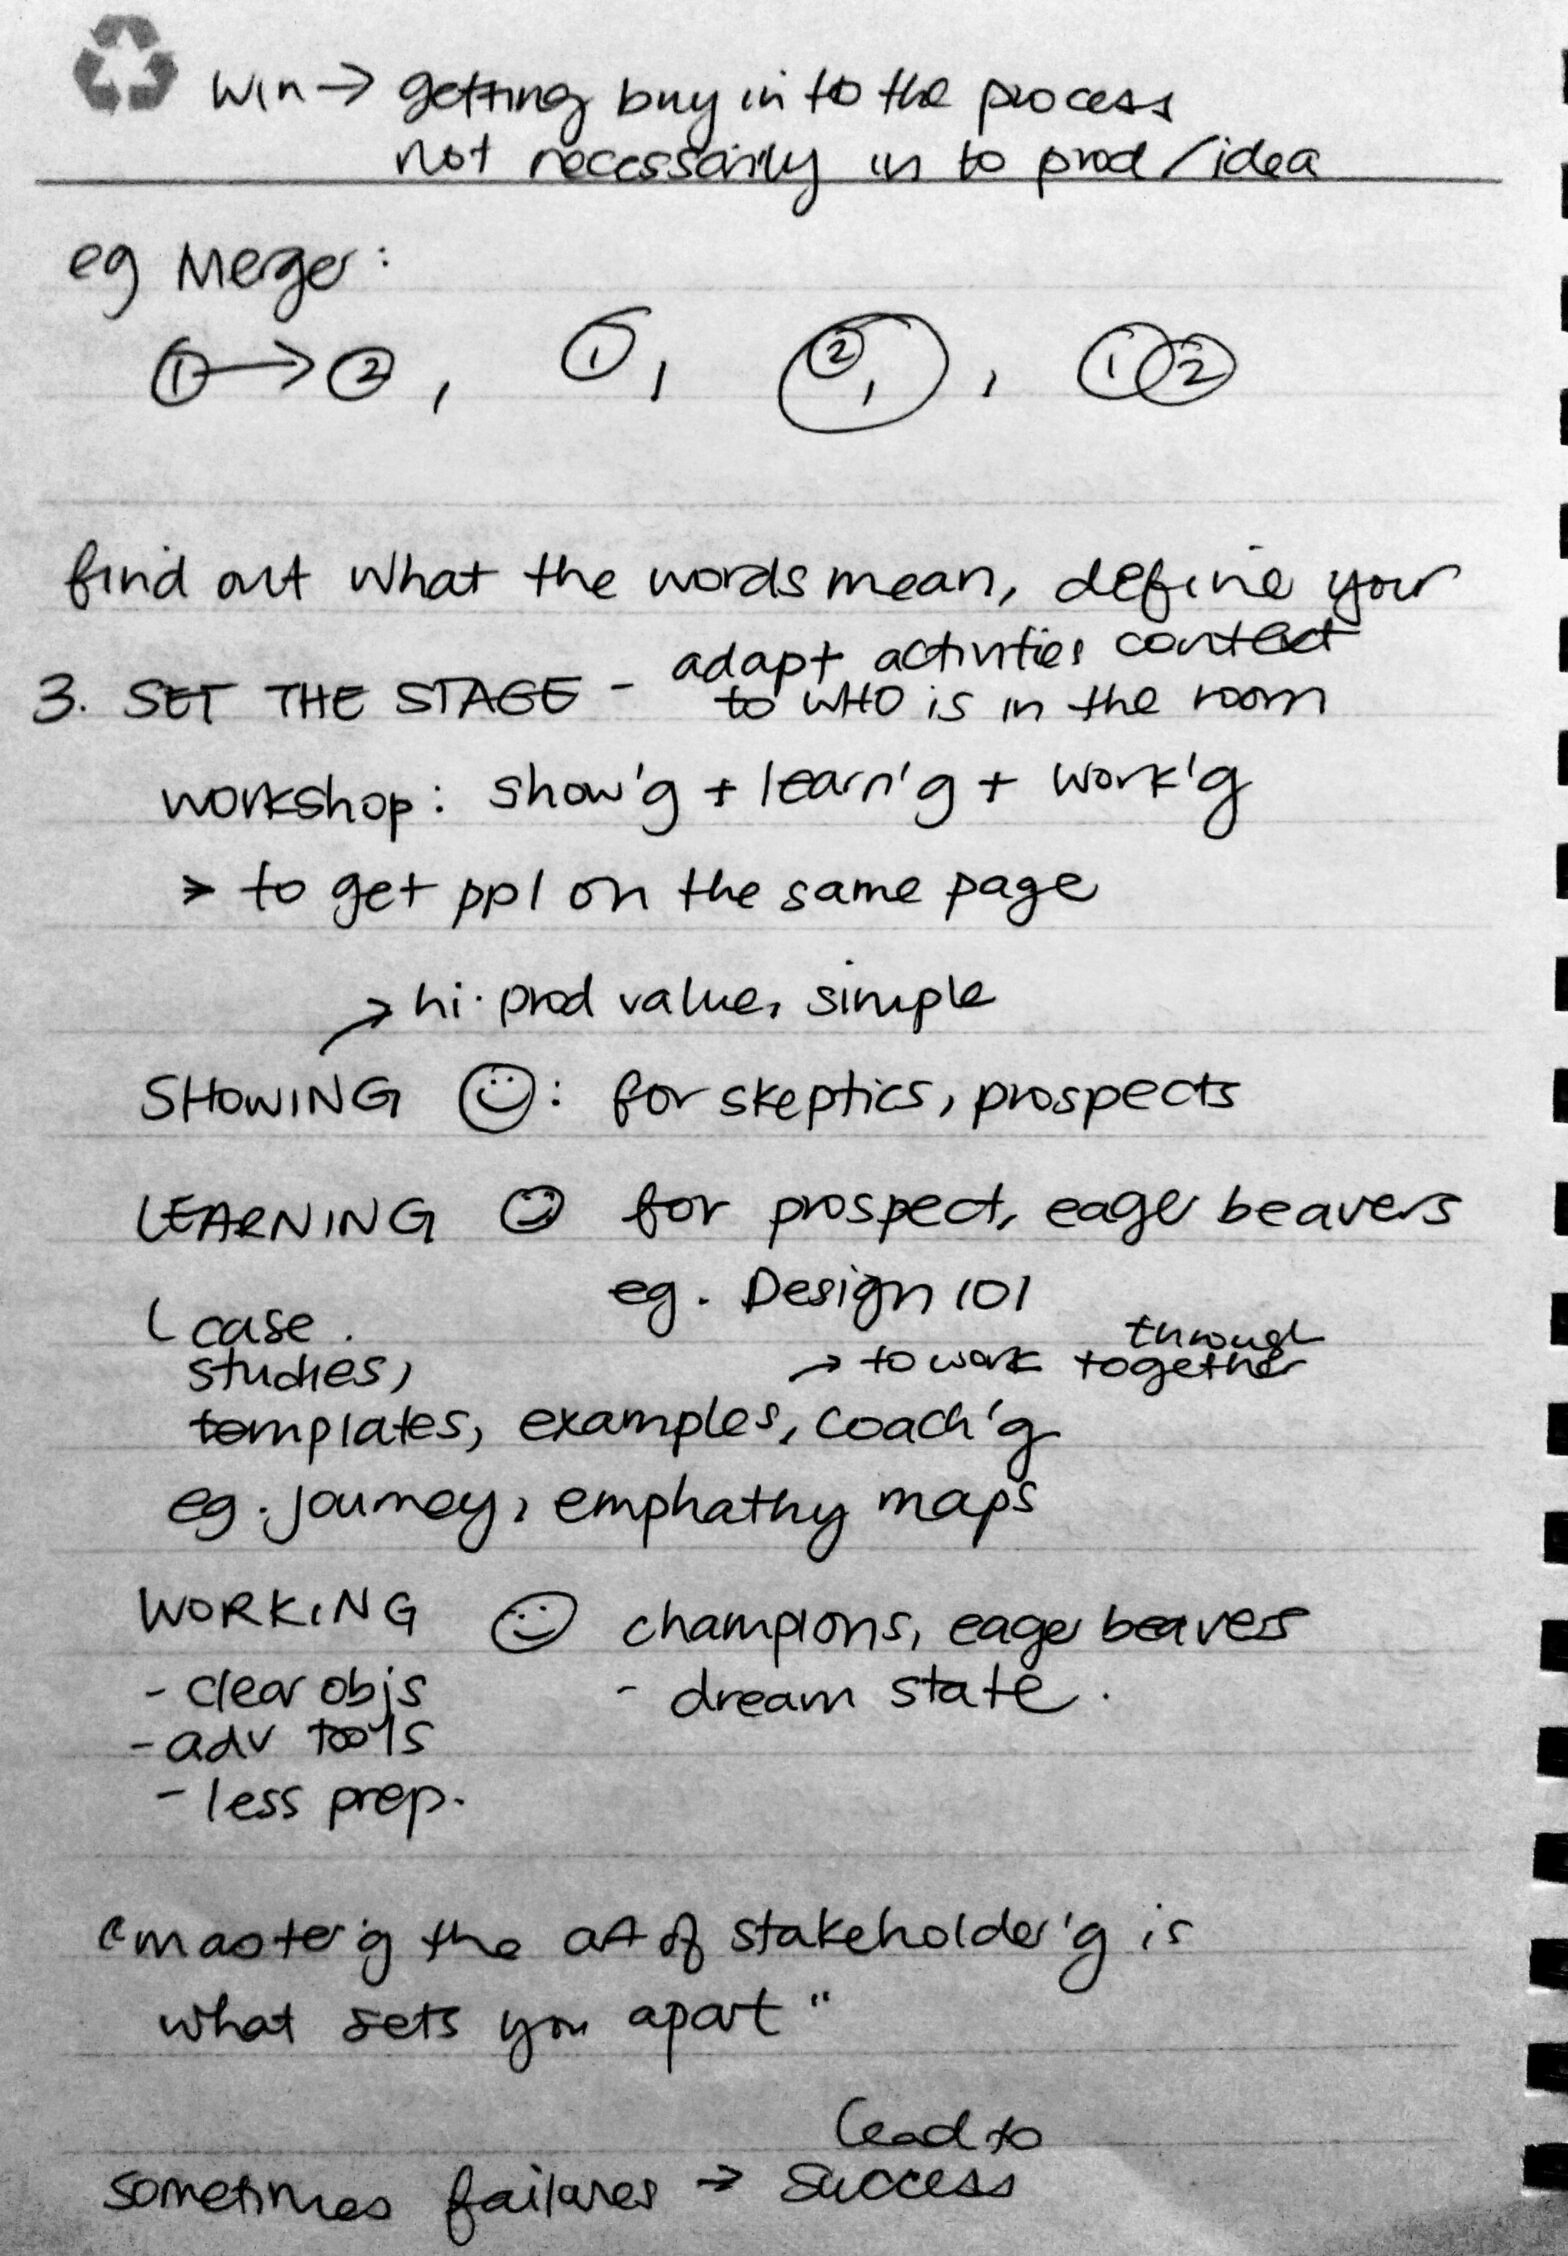 Win → getting buy in to the process
not necessarily in to prod/idea
eg Merger:
1 → 2, 1, 2 1, 1 2
find out what the words mean, define your
context
3. SET THE STAGE - adapt activities
to WHO is in the room
workshop: show'g + learn'g + work'g
> to get ppl on the same page
→ hi. prod value, simple
SHOWING : for skeptics, prospects
LEARNING for prospect, eager beavers
eg. Design 101
case
studies,
→ to work through
together
templates, examples, coach'g
eg. journey, emphathy maps
WORKING champions, eager beavers
- clear objs - dream state.
- adv tools
- less prep.
"master'g the art of stakeholder'g is
what sets you apart"
lead to
sometimes failures → success